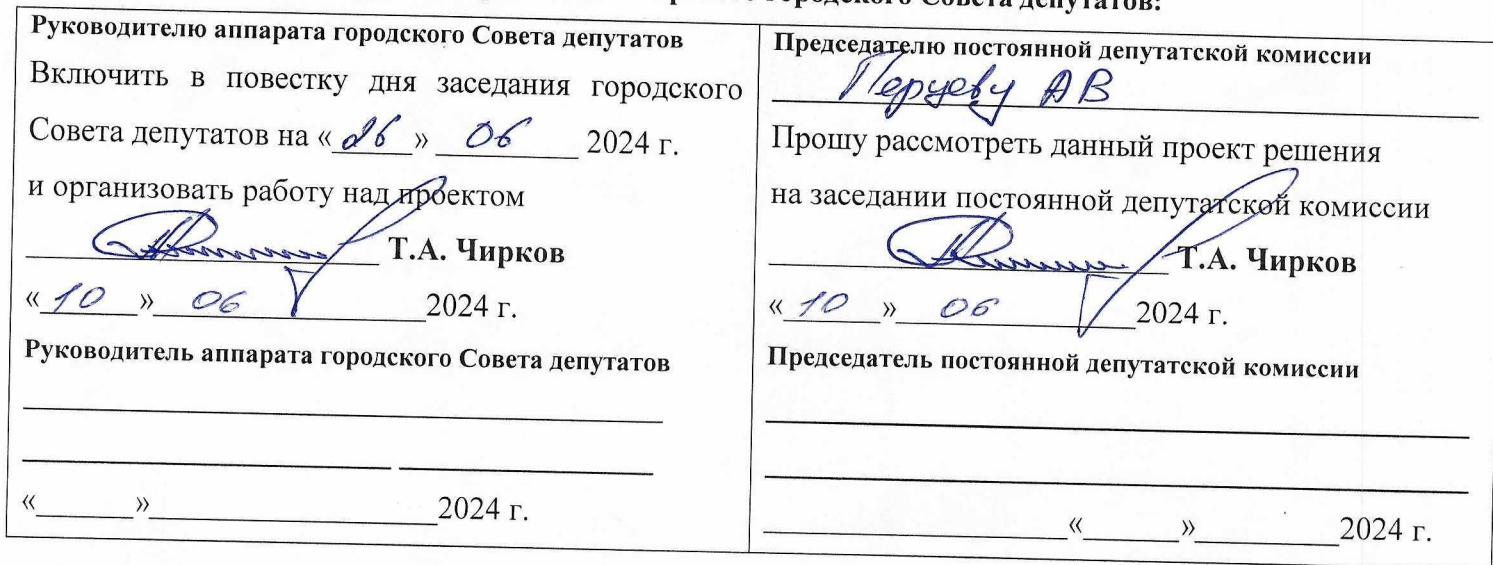 городского Совета депутатов:
Руководителю аппарата городского Совета депутатов
Включить в повестку дня заседания городского
Совета депутатов на «26» 06 2024 г.
и организовать работу над проектом
Т.А. Чирков
«10» 06 2024 г.
Руководитель аппарата городского Совета депутатов
«______»__________________2024 г.
Председателю постоянной депутатской комиссии
Перцеву АВ
Прошу рассмотреть данный проект решения
на заседании постоянной депутатской комиссии
Т.А. Чирков
«10» 06 2024 г.
Председатель постоянной депутатской комиссии
«______»_________2024 г.